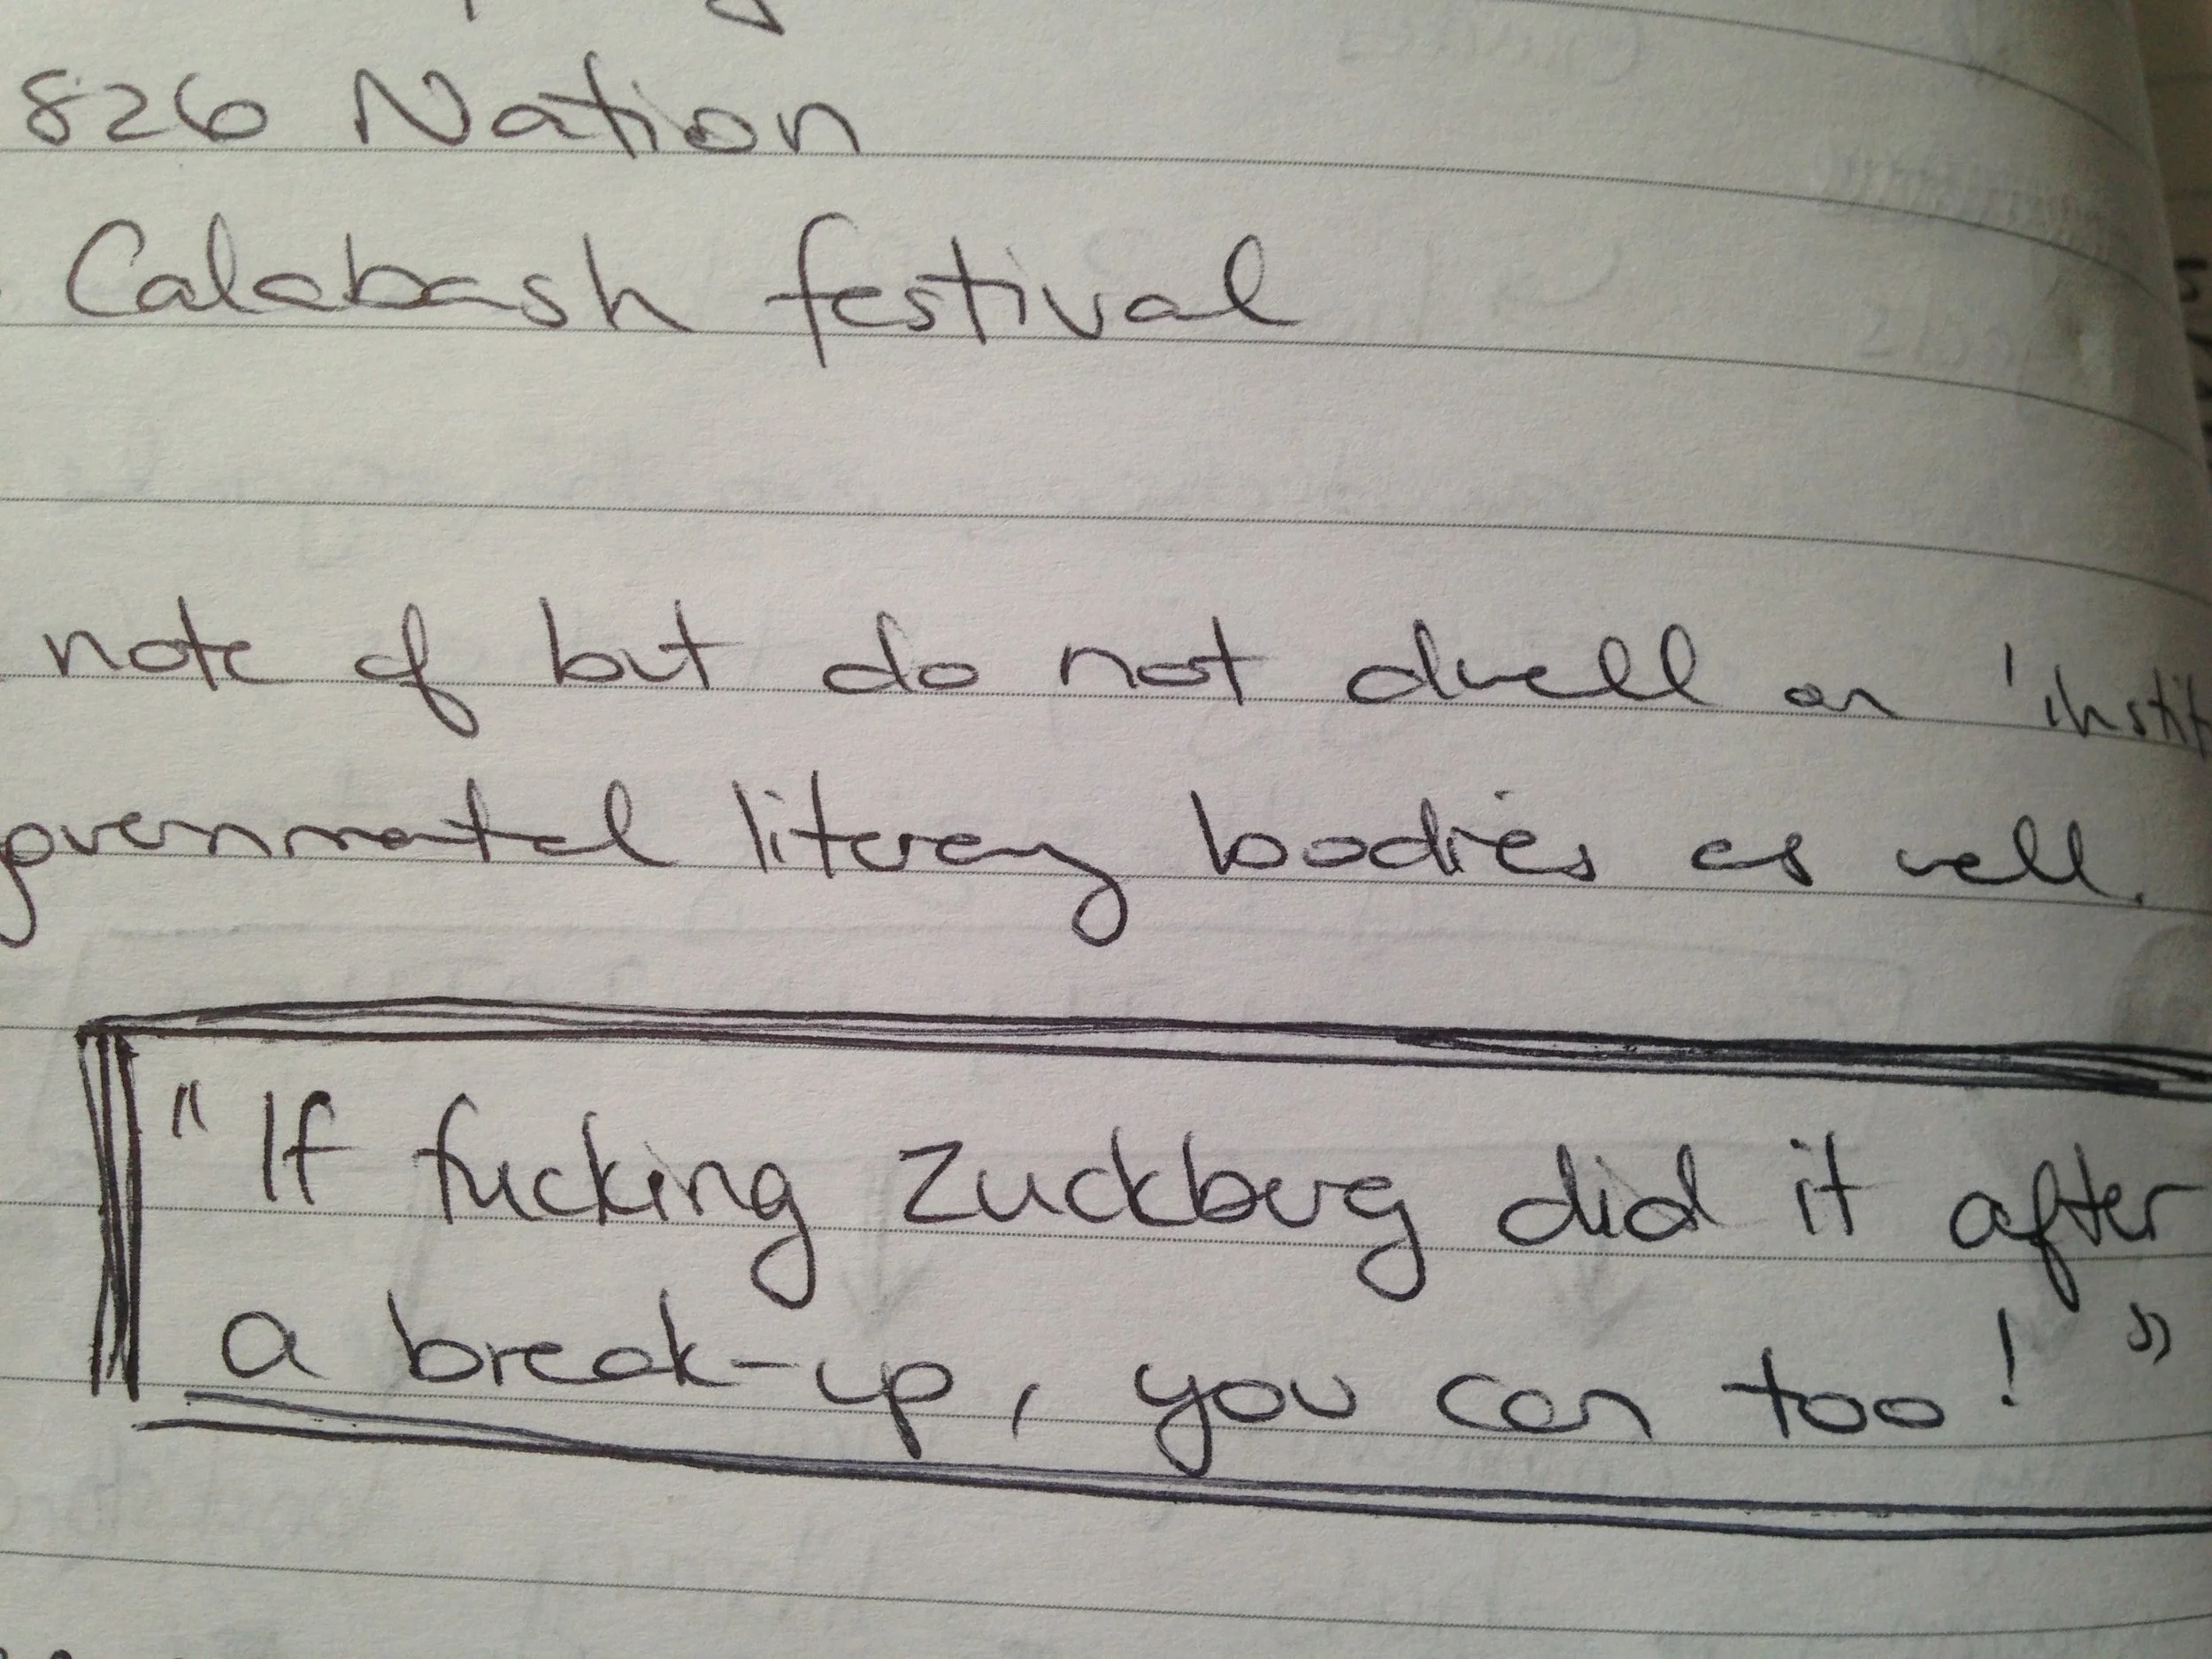 826 Nation
Calabash festival
note of but do not dwell on 'instit
governmental literary bodies as well.
"If fucking Zuckberg did it after
a break-up, you can too!"